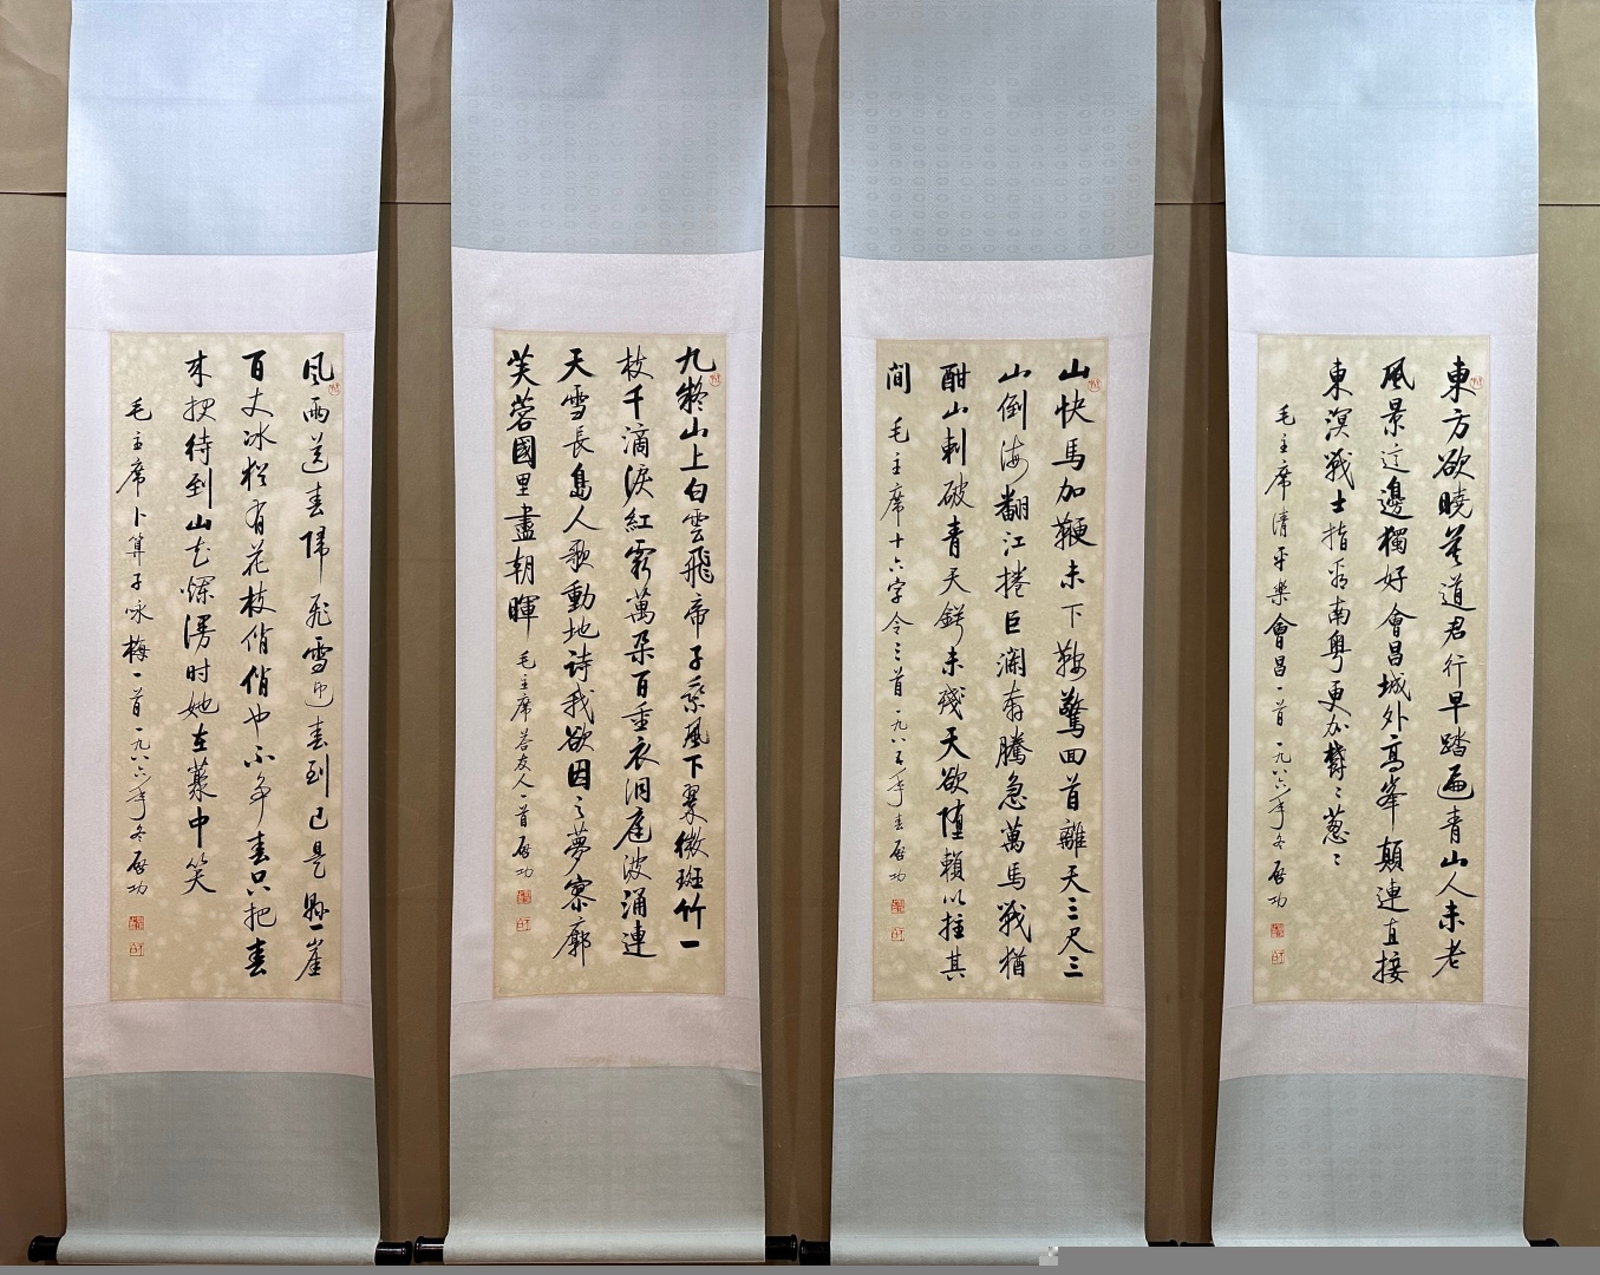 東方欲曉莫道君行早踏遍青山人未老
風景這邊獨好會昌城外高峯顛連直接
東溟戰士指看南粤更加欝〻蔥〻
毛主席清平樂會昌一首一九八六年冬啟功
山快馬加鞭未下鞍驚回首離天三尺三
山倒海翻江捲巨瀾奔騰急萬馬戰猶
酣山刺破青天鍔未殘天欲墮賴以拄其
間
毛主席十六字令三首一九八五年春啟功
九嶷山上白雲飛帝子乘風下翠微斑竹一
枝千滴淚紅霞萬朵百重衣洞庭波涌連
天雪長島人歌動地詩我欲因之夢寥廓
芙蓉國里盡朝暉
毛主席答友人一首啟功
风雨送春归飛雪迎春到已是懸崖
百丈冰犹有花枝俏俏也不争春只把春
来报待到山花烂漫时她在叢中笑
毛主席卜算子咏梅一首一九八六年冬啟功